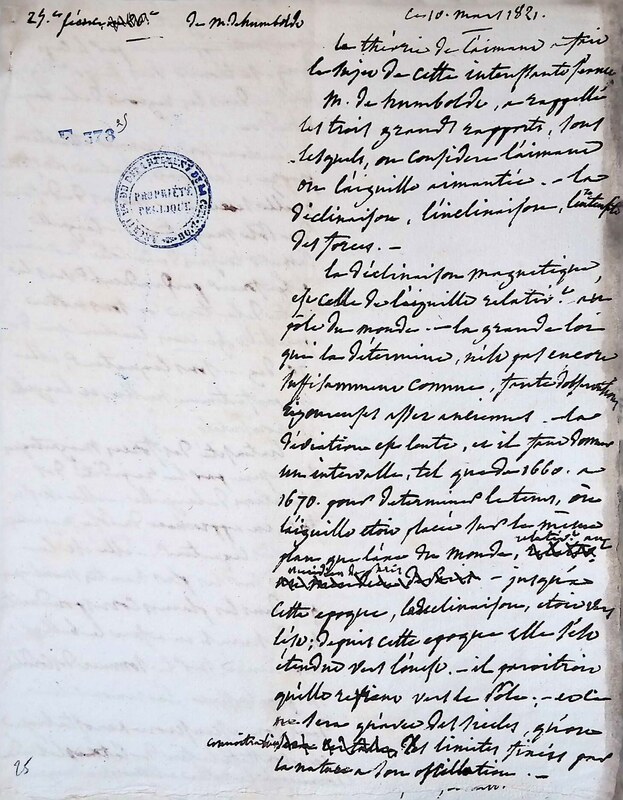 25.e séance de M. de humboldt ce 10. mars 1821.
la théorie de l'aimant a fait
le sujet de cette intéressante séance
M. de humboldt, a rappellé
les trois grands rapports, sous
lesquels, on considere l'aimant
ou l'aiguille aimantée. - la
déclinaison, l'inclinaison, l'intensité
des forces. -
la déclinaison magnetique,
est celle de l'aiguille relativ.t au
pôle du monde. - la grande loi
qui la détermine, n'est pas encore
suffisamment connue, faute d'observations
rigoureuses assez anciennes. - la
déviation est lente, et il faut donner
un intervalle, tel que de 1660. a
1670. pour determiner le tems, où
l'aiguille etoit placée sur le même
plan que l'axe du monde, relativ.t au
meridien de paris - jusqu'à
cette epoque, la declinaison, etoit vers
l'est; depuis cette epoque elle s'est
étendue vers l'ouest. - il paroitroit
qu'elle revient vers le Pôle. - et ce
ne sera qu'avec des siecles, qu'on
connoitra les limites fixées par
la nature a son oscillation. -
F 373 25
ARCHIVES DU DÉPARTEMENT DE LA CÔTE D'OR
PROPRIÉTÉ
PUBLIQUE
25